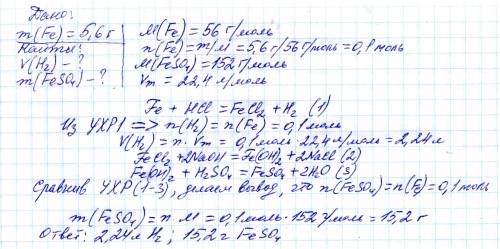 Дано:
m(Fe) = 5,6 г
Найти:
V(H₂) - ?
m(FeSO₄) - ?
M(Fe) = 56 г/моль
n(Fe) = m/M = 5,6 г/56 г/моль = 0,1 моль
M(FeSO₄) = 152 г/моль
Vm = 22,4 л/моль
Fe + HCl = FeCl₂ + H₂ (1)
Из УХР1 => n(H₂) = n(Fe) = 0,1 моль
V(H₂) = n · Vm = 0,1 моль · 22,4 л/моль = 2,24 л
FeCl₂ + 2NaOH = Fe(OH)₂ + 2NaCl (2)
Fe(OH)₂ + H₂SO₄ = FeSO₄ + 2H₂O (3)
Сравнив УХР (1-3), делаем вывод, что n(FeSO₄) = n(Fe) = 0,1 моль
m(FeSO₄) = n · M = 0,1 моль · 152 г/моль = 15,2 г
Ответ: 2,24 л H₂ ; 15,2 г FeSO₄